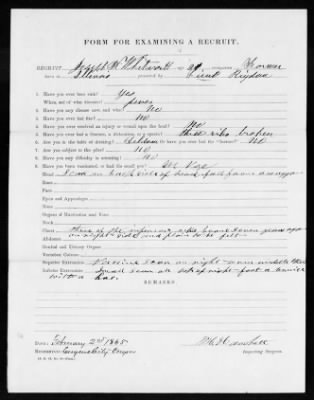 FORM FOR EXAMINING A RECRUIT.
RECRUIT Joseph W Whitworth age occupation Farmer
Illinois presented by Lieut
1. Have you ever been sick? Yes
When, and of what disease? fever
2. Have you any disease now, and what? No
3. Have you ever had fits? No
4. Have you ever received an injury or wound upon the head? No
5. Have you ever had a fracture, a dislocation, or a sprain? three ribs broken
6. Are you in the habit of drinking? Seldom Or have you ever had the "horrors"? No
7. Are you subject to the piles? No
8. Have you any difficulty in urinating? No
9. Have you been vaccinated, or had the small pox? Vac
Head Scar on back side of head
Face
Eyes and Appendages
Nose
Organs of Mastication and Voice
Neck
Chest Three of the inferior ribs broken seven years ago
on right side and plain to be felt
Abdomen
Genital and Urinary Organs
Vertebral Column
Superior Extremities Vaccine scar on right arm middle third
Inferior Extremities Small scar on top right foot
with a
REMARKS.
DATE: February 2nd 1865
RESIDENCE: Eugene City Oregon
Inspecting Surgeon.